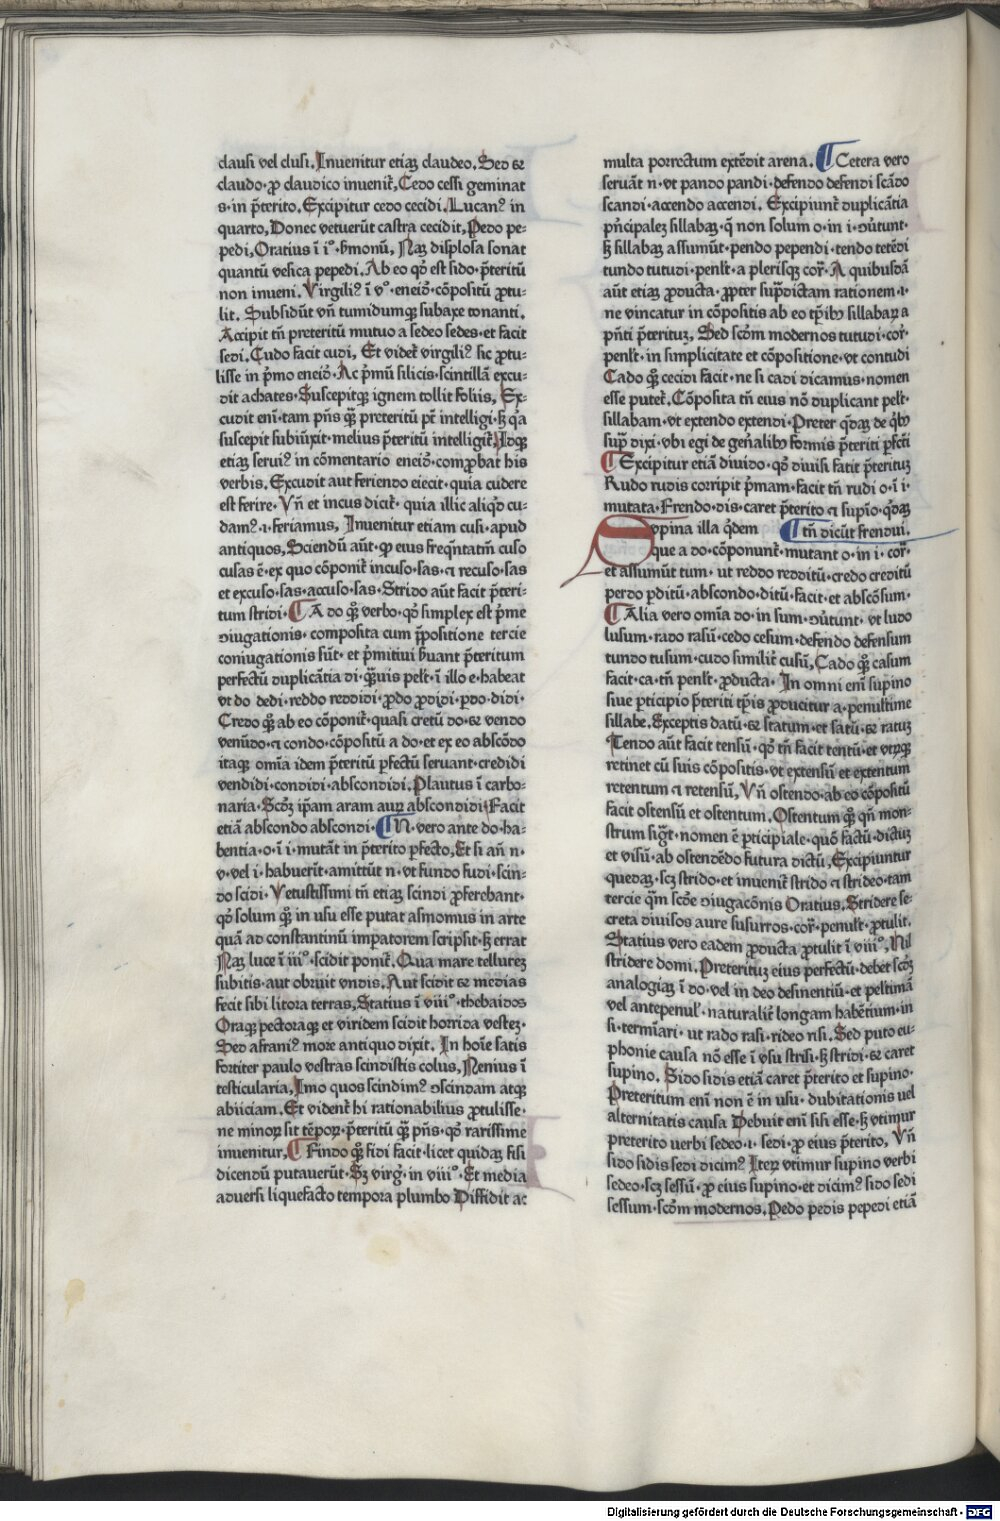 clausi vel clusi. Inuenitur etiaꝫ claudeo. Sed ⁊
claudo·ꝓ claudico inuenit᷑. Cedo cessi geminat
s·in p̄terito. Excipitur cedo cecidi. Lucanꝰ in
quarto, Donec vetuerūt castra cecidit, Pedo pe-
pedi, Oratius ī i°· ẜmonū, Naꝫ displosa sonat
quantū vesica pepedi. Ab eo qd̓ est sido·p̄teritū
non inueni. Virgiliꝰ ī v°·eneid̓·cōpositū ꝓtu-
lit. Subsidūt vn̄ tumidumqꝫ subaxe tonanti.
Accipit tn̄ preteritū mutuo a sedeo sedes·et facit
sedi. Cudo facit cudi, Et videt᷑ virgiliꝰ sic ꝓtu-
lisse in p̓mo eneid̓·Ac p̓mū silicis·scintillā excu-
dit achates·Suscepitqꝫ ignem tollit foliis, Ex-
cudit eni·tam p̄ns qꝫ̄ preteritū pt̄ intelligi·sꝫ q̓a
suscepit subiūxit·melius p̄teritū intelligit᷑. Idqꝫ
etiaꝫ seruiꝰ in cōmentario eneid̓·comꝓbat his
verbis. Excudit aut feriendo eiecit·quia cudere
est ferire·Vn̄ et incus dicit᷑·quia illic aliqd̓ cu-
damꝰ·i·feriamus, Inuenitur etiam cusi·apud
antiquos, Sciendū aūt·ꝙ eius freq̄ntatm̄ cuso
cusas ē·ex quo cōponit᷑ incuso·sas·⁊ recuso·sas
et excuso·sas·accuso·sas·Strido aūt facit p̄teri-
tum stridi·¶A do qꝫ̄ verbo·qd̓ simplex est p̓me
ↄiugationis·composita cum p̄positione tercie
coniugationis sūt·et p̓mitiui ẜuant p̄teritum
perfectū duplicātia di·qꝫ̄uis pel̄t·ī illo e·habeat
vt do dedi·reddo reddidi·ꝓdo ꝓdidi·ꝑdo·didi·
Credo qꝫ̄ ab eo cōponit᷑·quasi cretū do·⁊ vendo
venūdo·⁊ condo·cōpositū a do·et ex eo abscōdo
itaqꝫ omīa idem p̄teritū ꝑfectū seruant·credidi
vendidi·condidi·abscondidi. Plautus ī carbo-
naria·Scdꝫ ip̄am aram auꝝ abscondidi. Facit
etiā abscondo abscondi·¶N·vero ante do·ha-
bentia·o·ī i·mutāt in p̄terito ꝑfecto, Et si an̄ n·
v·vel i·habuerīt·amittūt n·vt fundo fudi·scin-
do scidi·Vetustissimi tn̄ etiaꝫ scindi ꝓferebant·
qd̓ solum qꝫ̄ in usu esse putat asmomus in arte
quā ad constantinū imꝑatorem scripsit·sꝫ errat
Naꝫ luce ī iii°·scidit ponit᷑. Qua mare tellureꝫ
subitis·aut obruit vndis. Aut scidit ⁊ medias
fecit sibi litora terras, Statius ī viii°·thebaidos
Oraqꝫ pectoraqꝫ et viridem scidit horrida vesteꝫ·
Sed afraniꝰ more antiquo dixit. In hoīe satis
fortiter paulo vestras scindistis colus, Nenius ī
testicularia, Imo quos scindimꝰ ↄscindam atqꝫ
abiiciam. Et vident᷑ hi rationabilius ꝓtulisse·
ne minoꝝ sit tēpoꝝ·p̄teritū qꝫ̄ p̄ns·qd̓ rarissime
inuenitur, ¶Findo qꝫ̄ fidi facit·licet quidaꝫ fisi
dicendū putauerūt·Sꝫ virg᷑·in viii°·Et media
aduersi liquefacto tempora plumbo Diffidit ac
multa porrectum extēdit arena. ¶Cetera vero
seruāt n·vt pando pandi·defendo defendi scādo
scandi·accendo accendi. Excipiunt᷑ duplicātia
pn̓cipaleꝫ sillabaꝫ·q̄ non solum o·in i·ↄu̓tunt·
sꝫ sillabaꝫ assumūt·pendo pependi·tendo tetēdi
tundo tutudi·penl̄t·a plerisqꝫ cor᷑·A quibusdā
aūt etiaꝫ ꝓducta·ꝓpter sup̄dictam rationem·i·
ne vincatur in cōpositis ab eo tp̄ibꝫ sillabaꝝ a
pn̄ti p̄terituꝫ, Sed scd̄m modernos tutudi·cor᷑·
penl̄t·in simplicitate et cōpositione·vt contudi
Cado qꝫ̄ cecidi facit·ne si cadi dicamus·nomen
esse putet᷑. Cōposita tn̄ eius nō duplicant pel̄t·
sillabam·vt extendo extendi·Preter q̓daꝫ de q̓bꝫ
sup̄ dixi·vbi egi de gen̄alibꝫ formis p̄teriti ꝑfc̄ti
¶Excipitur etiā diuido·qd̓ diuisi facit p̄terituꝫ
Rudo rudis corripit p̓mam·facit tn̄ rudi o·ī i·
mutata·Frendo·dis·caret p̄terito ⁊ supīo·q̓daꝫ
Supina illa q̓dem ¶tn̄ dicūt frendui.
que a do·cōponunt᷑·mutant o·in i·cor᷑·
et assumūt tum·ut reddo redditū·credo creditū
perdo ꝑditū·abscondo·ditū·facit·et abscōsum·
¶Alia vero omīa do·in sum·ↄu̓tunt·vt ludo
lusum·rado rasū·cedo cesum·defendo defensum
tundo tusum·cudo similit᷑ cusū, Cado qꝫ̄ casum
facit·ca·tn̄ penl̄t·ꝓducta·In omni eni supino
siue ꝑticipio p̄teriti tp̄is ꝓducitur a·penultime
sillabe. Exceptis datū·⁊ statum·et satū·⁊ ratuꝫ
Tendo aūt facit tensū·qd̓ tn̄ facit tentū·et vtrūqꝫ
retinet cū suis cōpositis·vt extensū et extentum
retentum ⁊ retensū, Vn̄ ostendo·ab eo cōpositū
facit ostensū et ostentum. Ostentum qꝫ̄ qn̄ mon-
strum sig̓t·nomen ē ꝑticipiale·quō factū·dictuꝫ
et visū·ab ostendēdo futura dictū, Excipiuntur
quedaꝫ·scꝫ strido·et inuenit᷑ strido ⁊ strideo·tam
tercie qꝫ̄m scd̄e ↄiugacōnis Oratius. Stridere se-
creta diuisos aure susurros·cor᷑·penul̄t·ꝓtulit.
Statius vero eadem ꝓducta ꝓtulit ī viii°, Nil
stridere domi. Preterituꝫ eius perfectū·debet scd̓ꝫ
analogiaꝫ ī do·vel in deo desinentiū·et pel̄timā
vel antepenul̓·naturalit᷑ longam habētium·in
si·termīari·ut rado rasi·rideo risi. Sed puto eu-
phonie causa nō esse ī vsu strisi·sꝫ stridi·⁊ caret
supino. Sido sidis etiā caret p̄terito et supino·
Preteritum eni non ē in usu·dubitationis uel
alternitatis causa Debuit eni sisi esse·sꝫ vtimur
preterito uerbi sedeo·i·sedi·ꝓ eius p̄terito, Vn̄
sido sidis sedi dicimꝰ Iteꝝ vtimur supino verbi
sedeo·scꝫ sessū·ꝓ eius supino·et dicimꝰ sido sedi
sessum·scd̄m modernos. Pedo pedis pepedi etiā
Digitalisierung gefördert durch die Deutsche Forschungsgemeinschaft - DFG